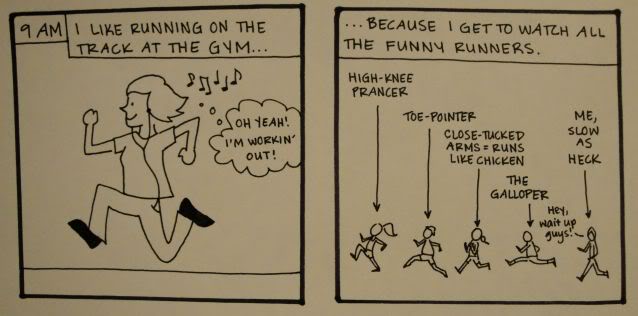 9 AM
I LIKE RUNNING ON THE
TRACK AT THE GYM...
OH YEAH!
I'M WORKIN'
OUT!
...BECAUSE I GET TO WATCH ALL
THE FUNNY RUNNERS.
HIGH-KNEE
PRANCER
TOE-POINTER
CLOSE-TUCKED
ARMS = RUNS
LIKE CHICKEN
THE
GALLOPER
ME,
SLOW
AS
HECK
Hey,
wait up
guys!